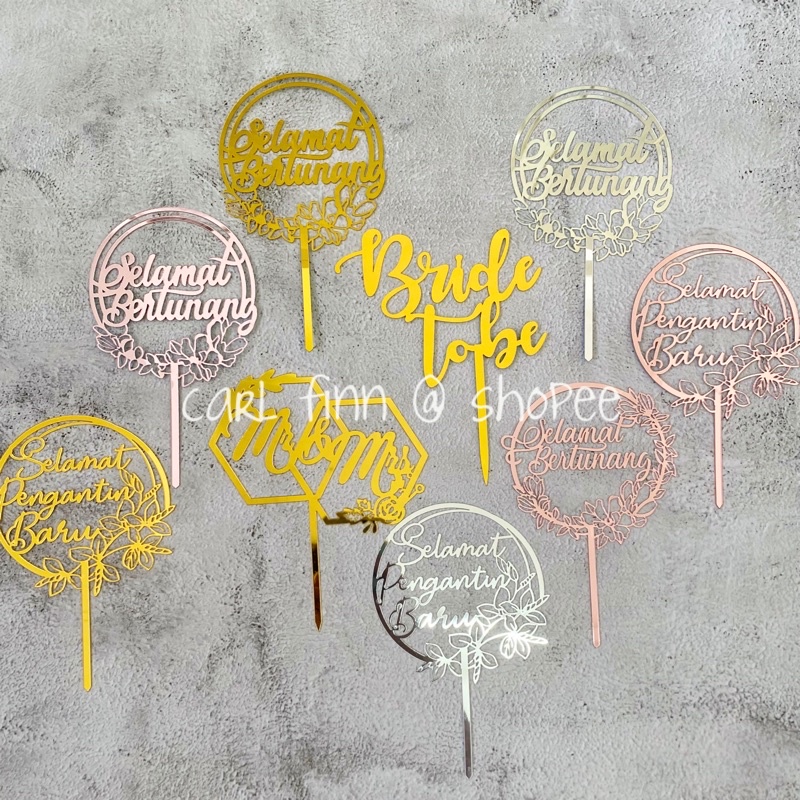 Selamat
Bertunang
Selamat
Bertunang
Selamat
Bertunang
Bride
to be
Selamat
Pengantin
Baru
carl finn @ shopee
Mr & Mrs
Selamat
Bertunang
Selamat
Pengantin
Baru
Selamat
Pengantin
Baru